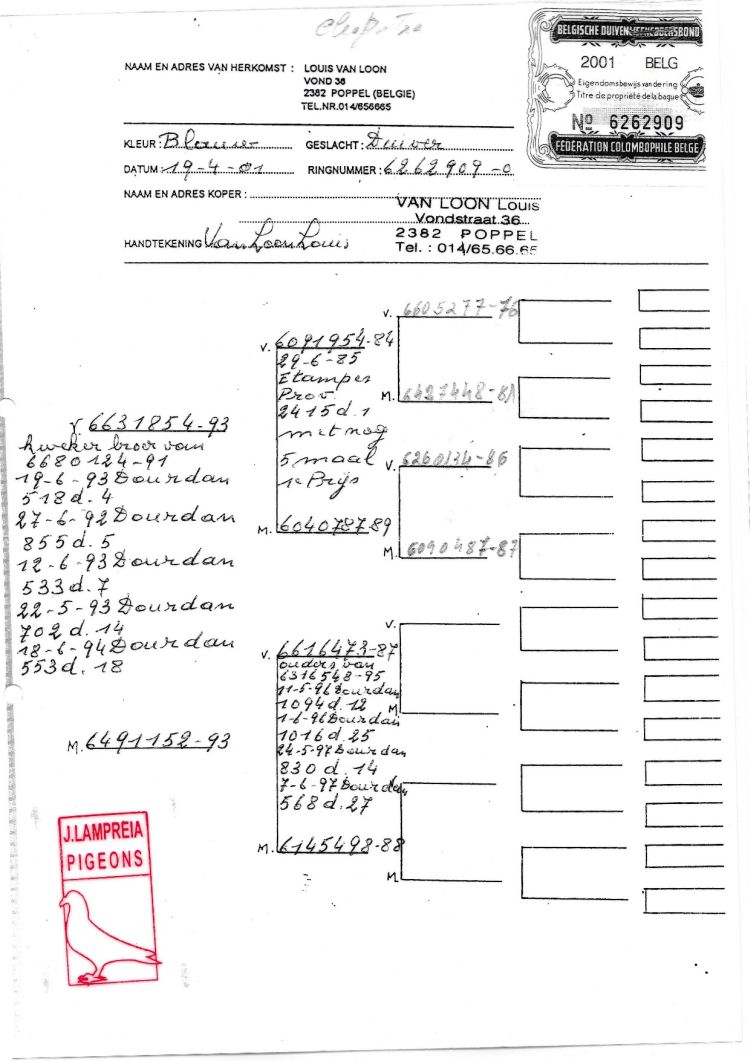 BELGISCHE DUIVENLIEFHEBBERSBOND
2001 BELG
Eigendomsbewijs van de ring
Titre de propriété de la bague
Nº 6262909
FÉDÉRATION COLOMBOPHILE BELGE
NAAM EN ADRES VAN HERKOMST : LOUIS VAN LOON
VOND 36
2382 POPPEL (BELGIE)
TEL.NR.014/656665
KLEUR: Blauwe GESLACHT: Duiver
DATUM: 19-4-01 RINGNUMMER: 6262909-0
NAAM EN ADRES KOPER :
VAN LOON Louis
Vondstraat 36
2382 POPPEL
Tel. : 014/65.66.65
HANDTEKENING Van Loon Louis
V. 6631854-93
kweker broer van
6680124-91
19-6-93 Dourdan
518 d. 4
27-6-92 Dourdan
855 d. 5
12-6-93 Dourdan
533 d. 7
22-5-93 Dourdan
702 d. 14
18-6-94 Dourdan
553 d. 18
M. 6491152-93
V. 6091954-84
29-6-85
Etampes
Prov.
2415 d. 1
met nog
5 maal
1e Prijs
M. 6040787-89
V. 6616473-87
ouders van
6316548-95
11-5-96 Dourdan
1094 d. 12
1-6-96 Dourdan
1016 d. 25
24-5-97 Dourdan
830 d. 14
7-6-97 Dourdan
568 d. 27
M. 6145498-88
V. 6605277-76
M. 6427448-81
V. 6260134-86
M. 6090487-87
V.
M.
V.
M.
J.LAMPREIA
PIGEONS